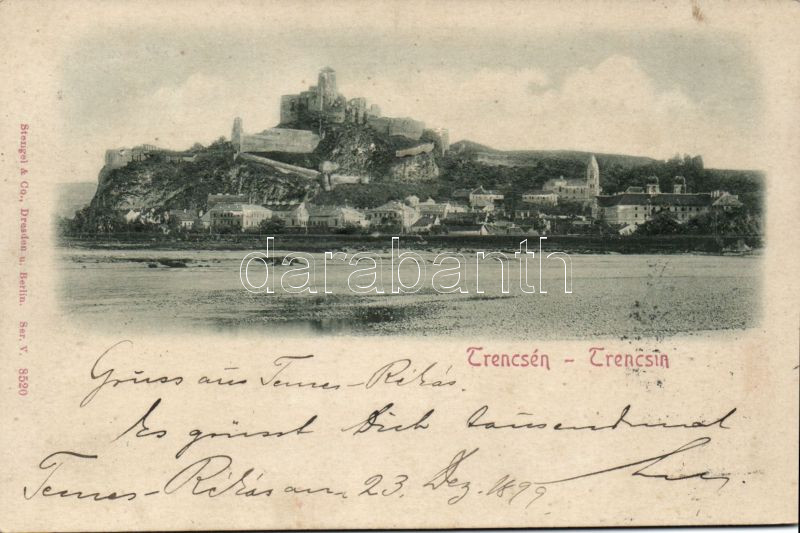 Stengel & Co., Dresden u. Berlin. Ser. V. 8520
darabanth
Trencsén - Trencsin
Gruss aus Temes-Rékás.
Es grüsst Dich tausendmal
Temes-Rékás am 23. Dez. 1899